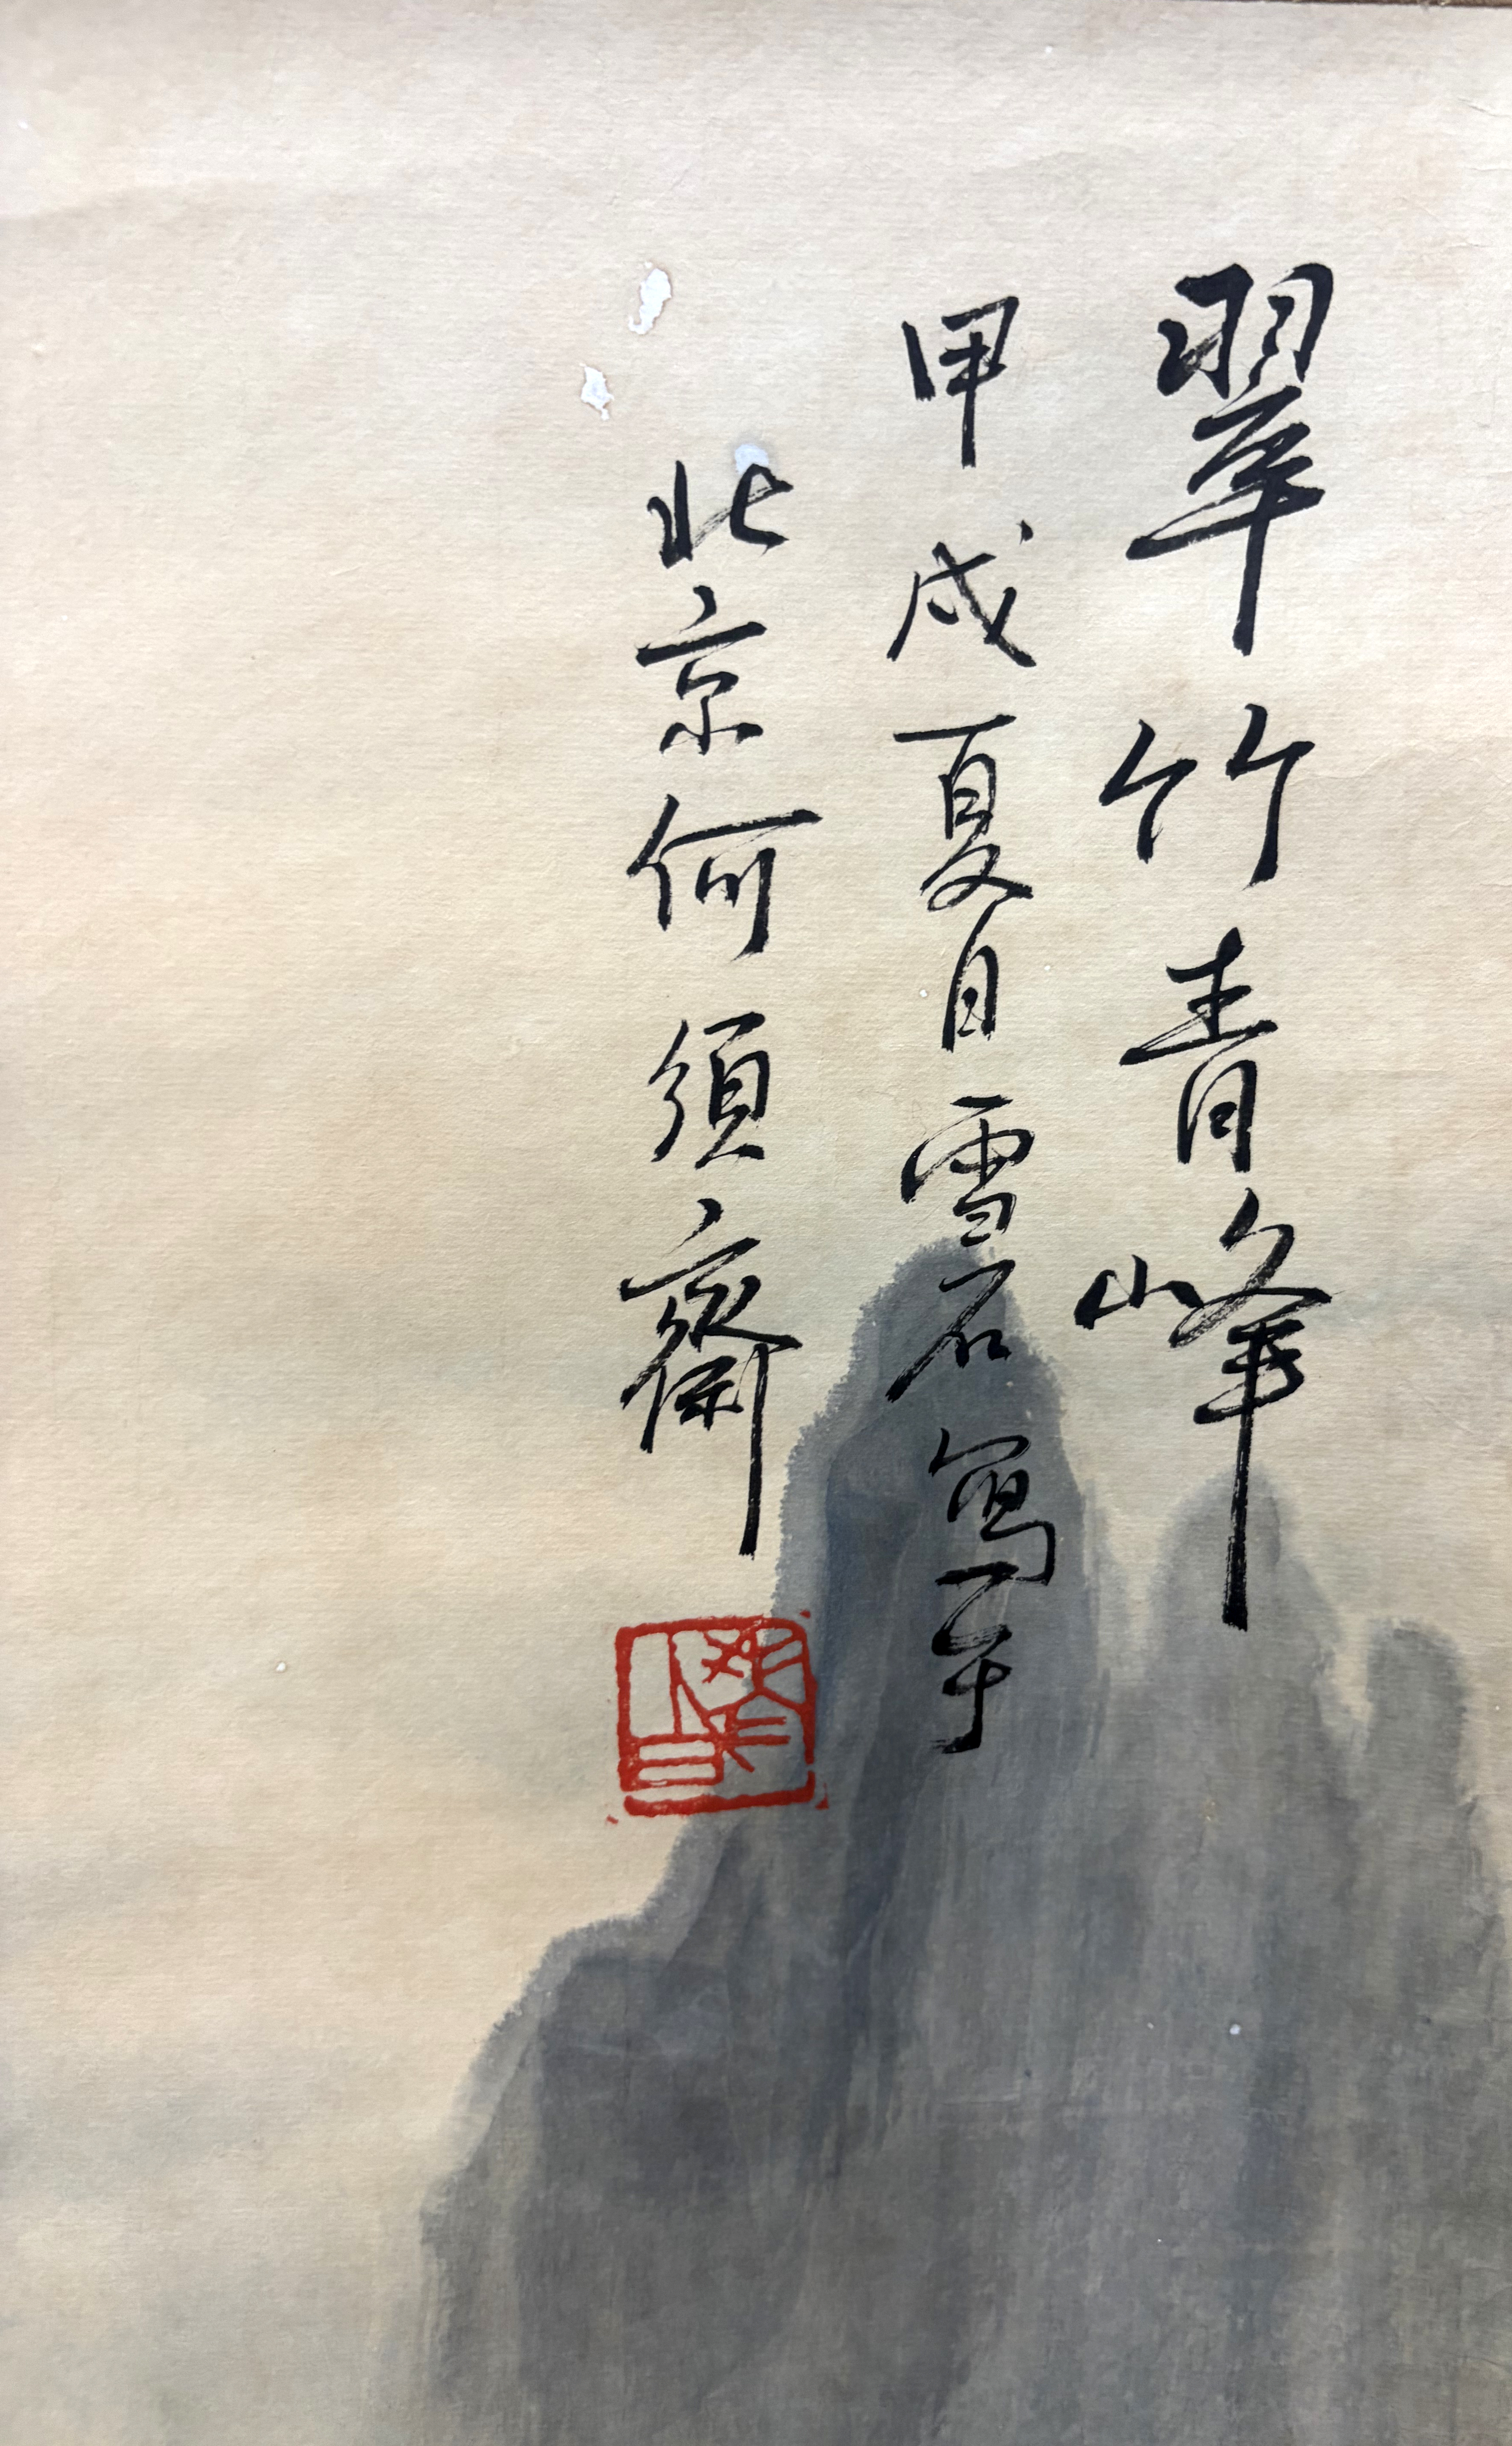 翠竹青峰
甲戌夏日雪石寫于
北京何須齋